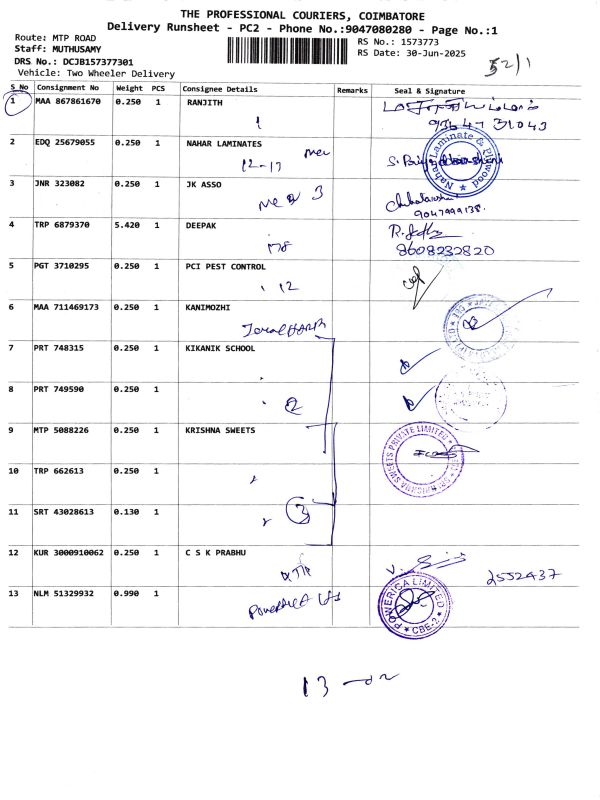 THE PROFESSIONAL COURIERS, COIMBATORE
Delivery Runsheet - PC2 - Phone No.:9047080280 - Page No.:1
Route: MTP ROAD
RS No.: 1573773
Staff: MUTHUSAMY
RS Date: 30-Jun-2025
DRS No.: DCJB157377301
52/1
Vehicle: Two Wheeler Delivery
S No Consignment No Weight PCS Consignee Details Remarks Seal & Signature
1 MAA 867861670 0.250 1 RANJITH
93647 31043
2 EDQ 25679055 0.250 1 NAHAR LAMINATES
12-17
Nahar Laminate & Plywood
3 JNR 323082 0.250 1 JK ASSO
3
9047999138.
4 TRP 6879370 5.420 1 DEEPAK
8608232820
5 PGT 3710295 0.250 1 PCI PEST CONTROL
12
6 MAA 711469173 0.250 1 KANIMOZHI
7 PRT 748315 0.250 1 KIKANIK SCHOOL
8 PRT 749590 0.250 1
2
9 MTP 5088226 0.250 1 KRISHNA SWEETS
SRI KRISHNA SWEETS PRIVATE LIMITED
10 TRP 662613 0.250 1
11 SRT 43028613 0.130 1
3
12 KUR 3000910062 0.250 1 C S K PRABHU
2552437
13 NLM 51329932 0.990 1
POWERICA LIMITED
CBE-2
13